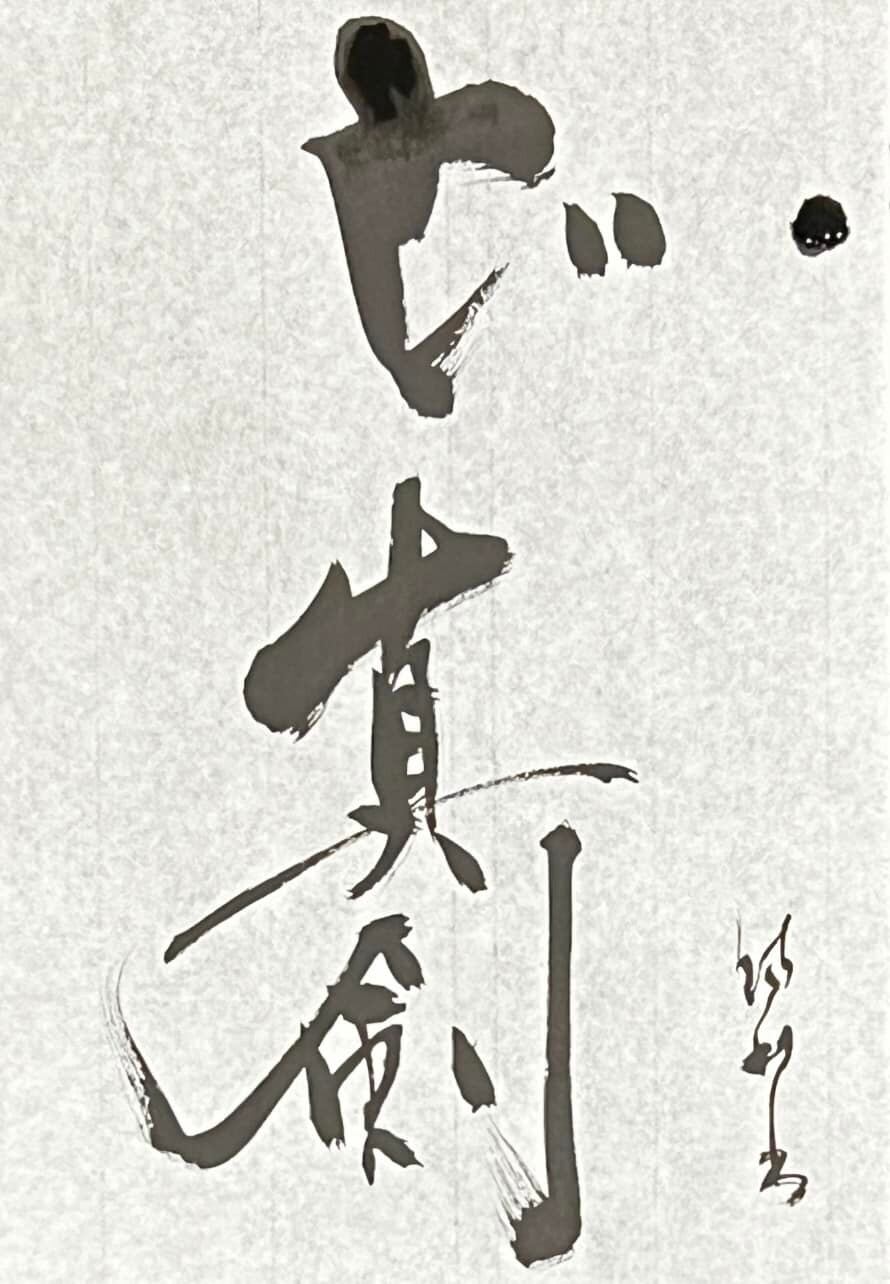 ど真剣